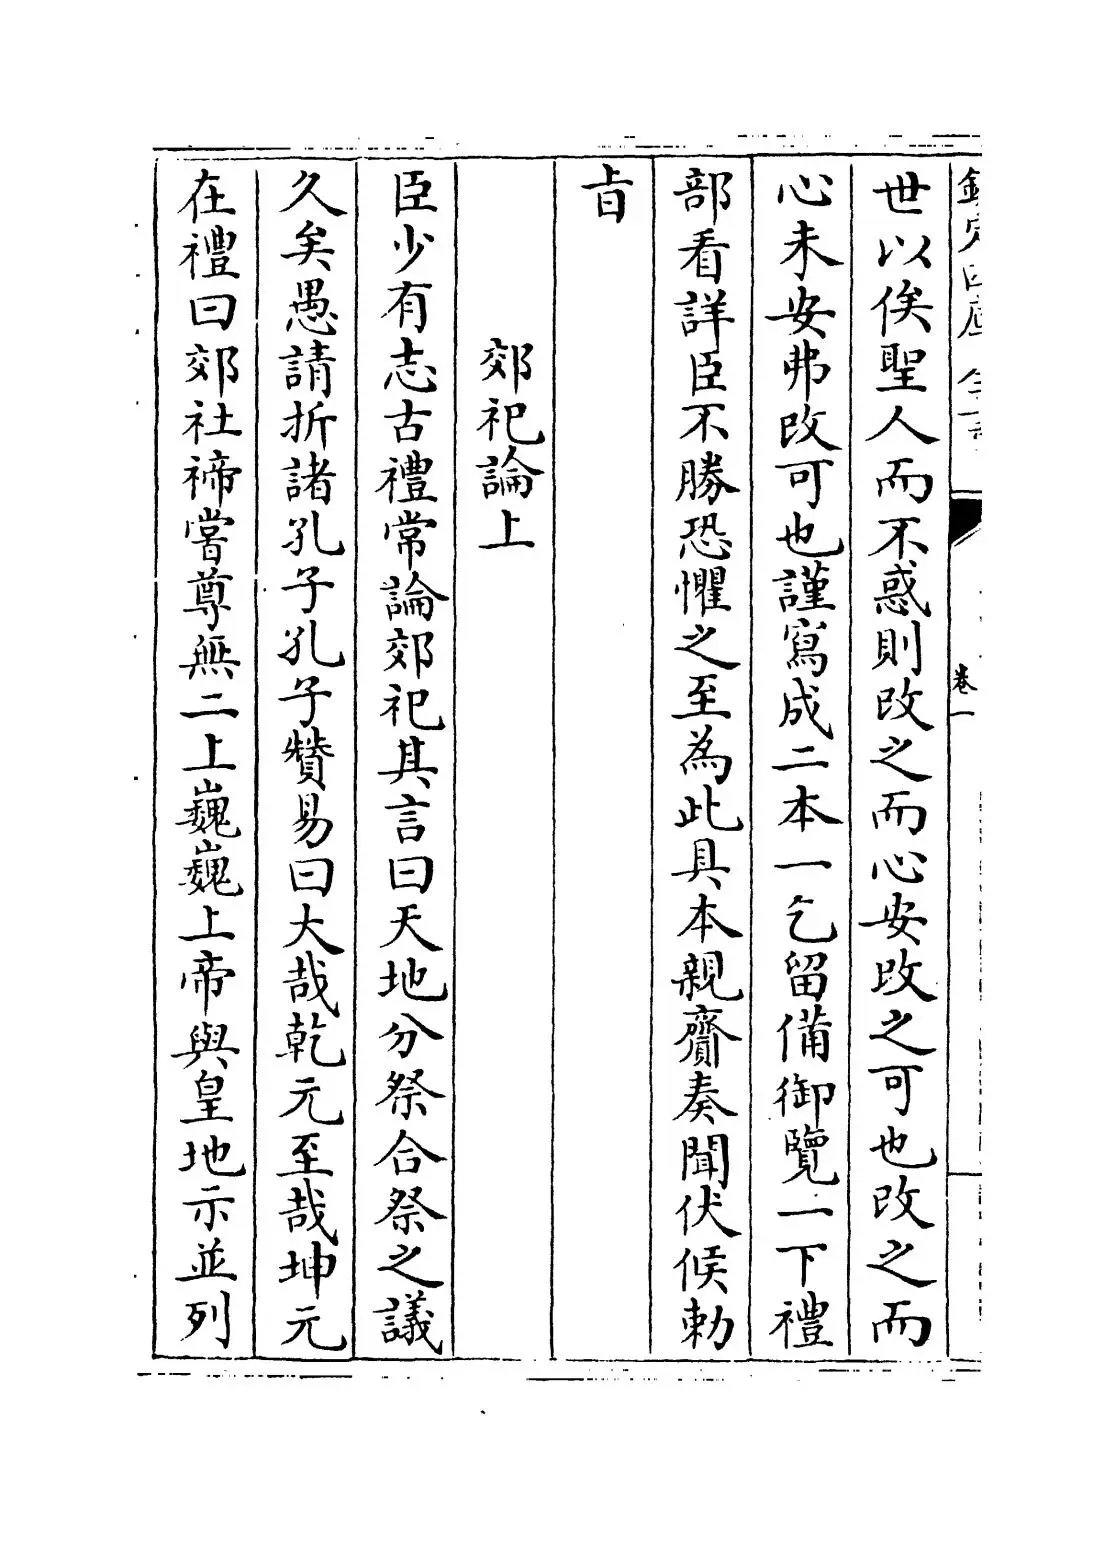 欽定四庫全書
卷一
世以俟聖人而不惑則改之而心安改之可也改之而
心未安弗改可也謹寫成二本一乞留備御覽一下禮
部看詳臣不勝恐懼之至為此具本親齎奏聞伏候勅
旨
郊祀論上
臣少有志古禮常論郊祀其言曰天地分祭合祭之議
久矣愚請折諸孔子孔子贊易曰大哉乾元至哉坤元
在禮曰郊社禘嘗尊無二上巍巍上帝與皇地示並列